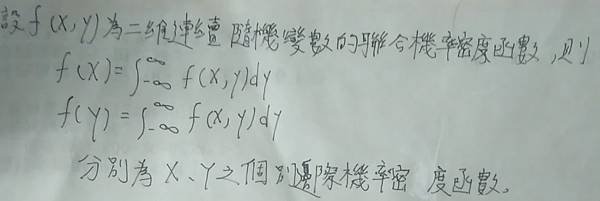 設 f(x,y)為二維連續隨機變數的聯合機率密度函數,則
f(x)=∫_{-∞}^{∞} f(x,y)dy
f(y)=∫_{-∞}^{∞} f(x,y)dy
分別為 X、Y之個別邊際機率密 度函數。